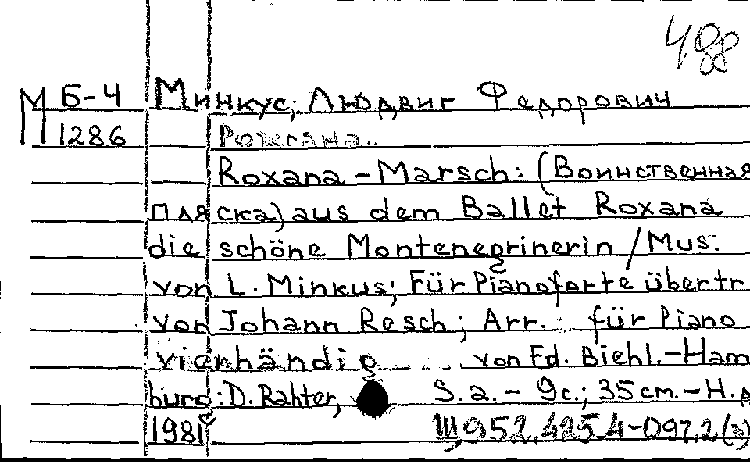 498
М Б-4 Минкус, Людвиг Федорович
1286 Роксана..
Roxana - Marsch: (Воинственная
пляска) aus dem Ballet Roxana
die schöne Montenegrinerin / Mus.
von L. Minkus; Für Pianoforte übertr
von Johann Resch; Arr. für Piano
vierhändig ... von Ed. Biehl. - Ham
burg: D. Rahter, S. a. - 9 c.; 35 cm. - Н.д
1981